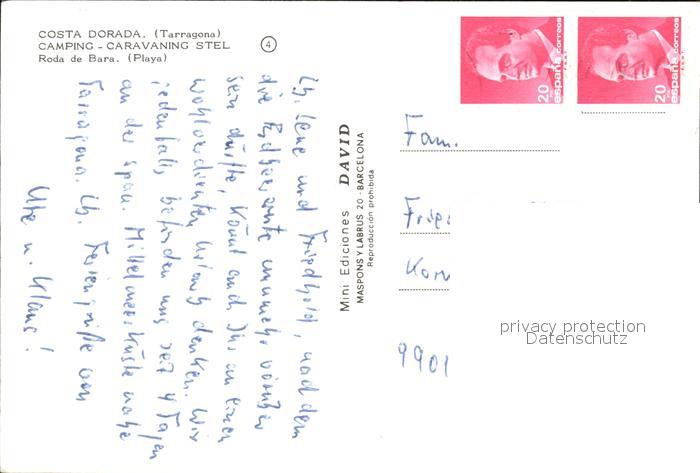 COSTA DORADA. (Tarragona)
CAMPING - CARAVANING STEL
Roda de Bara. (Playa)
4
Lb. Lene und Friedhold, nach dem
die Erdbeerernte nunmehr vorüber
sein dürfte, könnt auch Ihr an einen
wohlverdienten Urlaub denken. Wir
jedenfalls befinden uns seit 4 Tagen
an der span. Mittelmeerküste nahe
Tarragona. Lb. Feriengrüße von
Ute u. Klaus!
Mini Ediciones DAVID
MASPONS Y LABRUS 20 - BARCELONA
Reproducción prohibida
20 españa correos
20 españa correos
Fam.
Frie
Kor
9901
privacy protection
Datenschutz